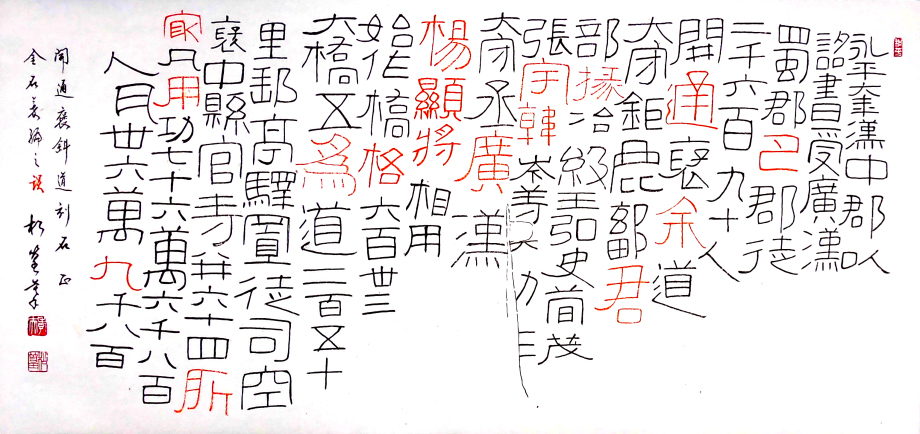 永平六年漢中郡以
詔書受廣漢
蜀郡巴郡徒
二千六百九十人
開通褒余道
太守鉅鹿鄐君
部掾冶級王弘史荀茂
張宇韓岑等
太守丞廣漢
楊顯將相用
始作橋格六百卅三
大橋五爲道二百五十
里郵亭驛置徒司空
褒中縣官寺并六十四所
最凡用功七十六萬六千八百
人瓦卅六萬九千八百
開通褒斜道刻石正
金石萃編之誤